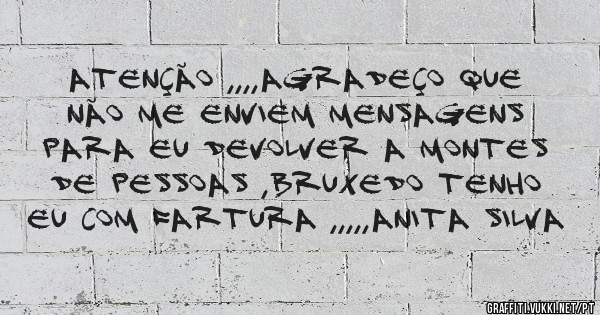 ATENÇÃO ,,,,AGRADEÇO QUE
NÃO ME ENVIEM MENSAGENS
PARA EU DEVOLVER A MONTES
DE PESSOAS ,BRUXEDO TENHO
EU COM FARTURA ,,,,,ANITA SILVA
GRAFFITI.VUKKI.NET/PT